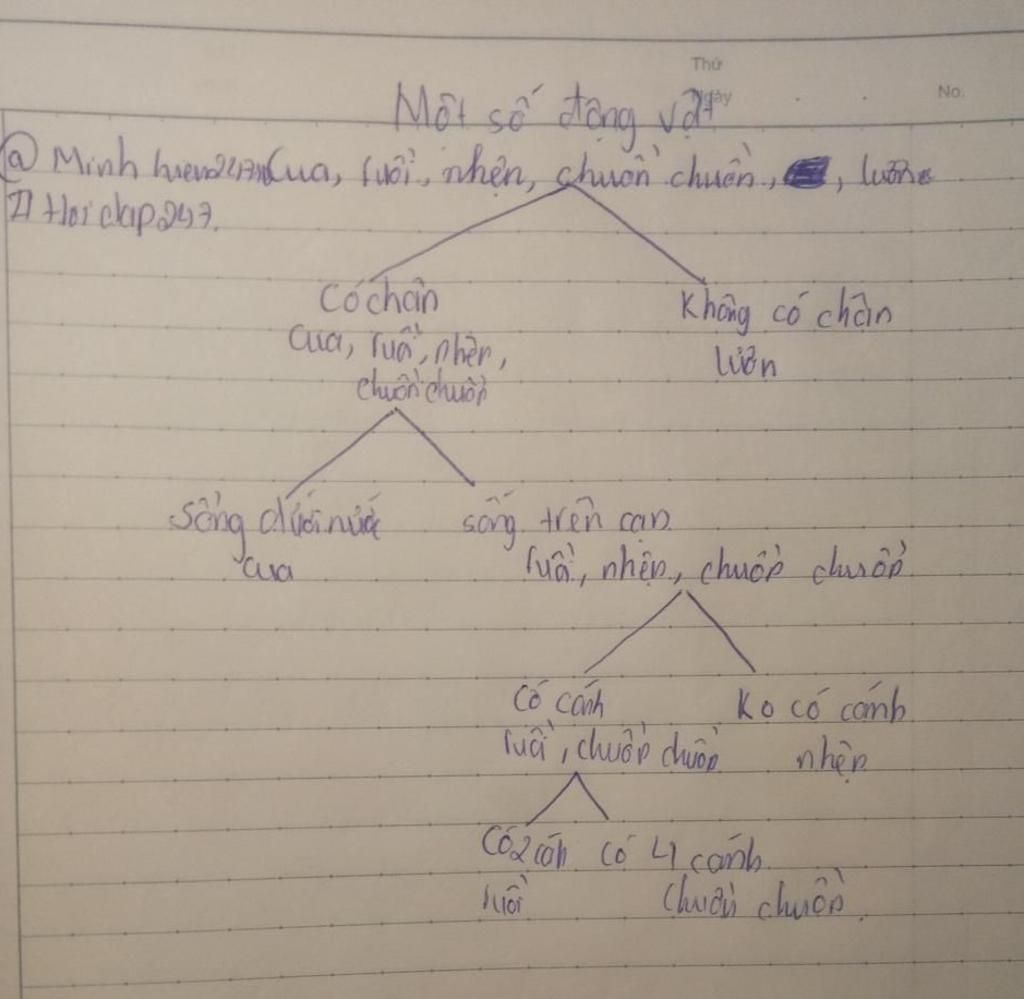 Thứ
Ngày
No.
Một số động vật
@ Minhhien247 Cua, ruồi, nhện, chuồn chuồn, , lươn
Hoidap247.
Có chân
Không có chân
Cua, ruồi, nhện,
chuồn chuồn
lươn
Sống dưới nước
sống trên cạn
cua
ruồi, nhện, chuồn chuồn
Có cánh
Ko có cánh
ruồi, chuồn chuồn
nhện
Có 2 cánh
có 4 cánh
ruồi
Chuồn chuồn.